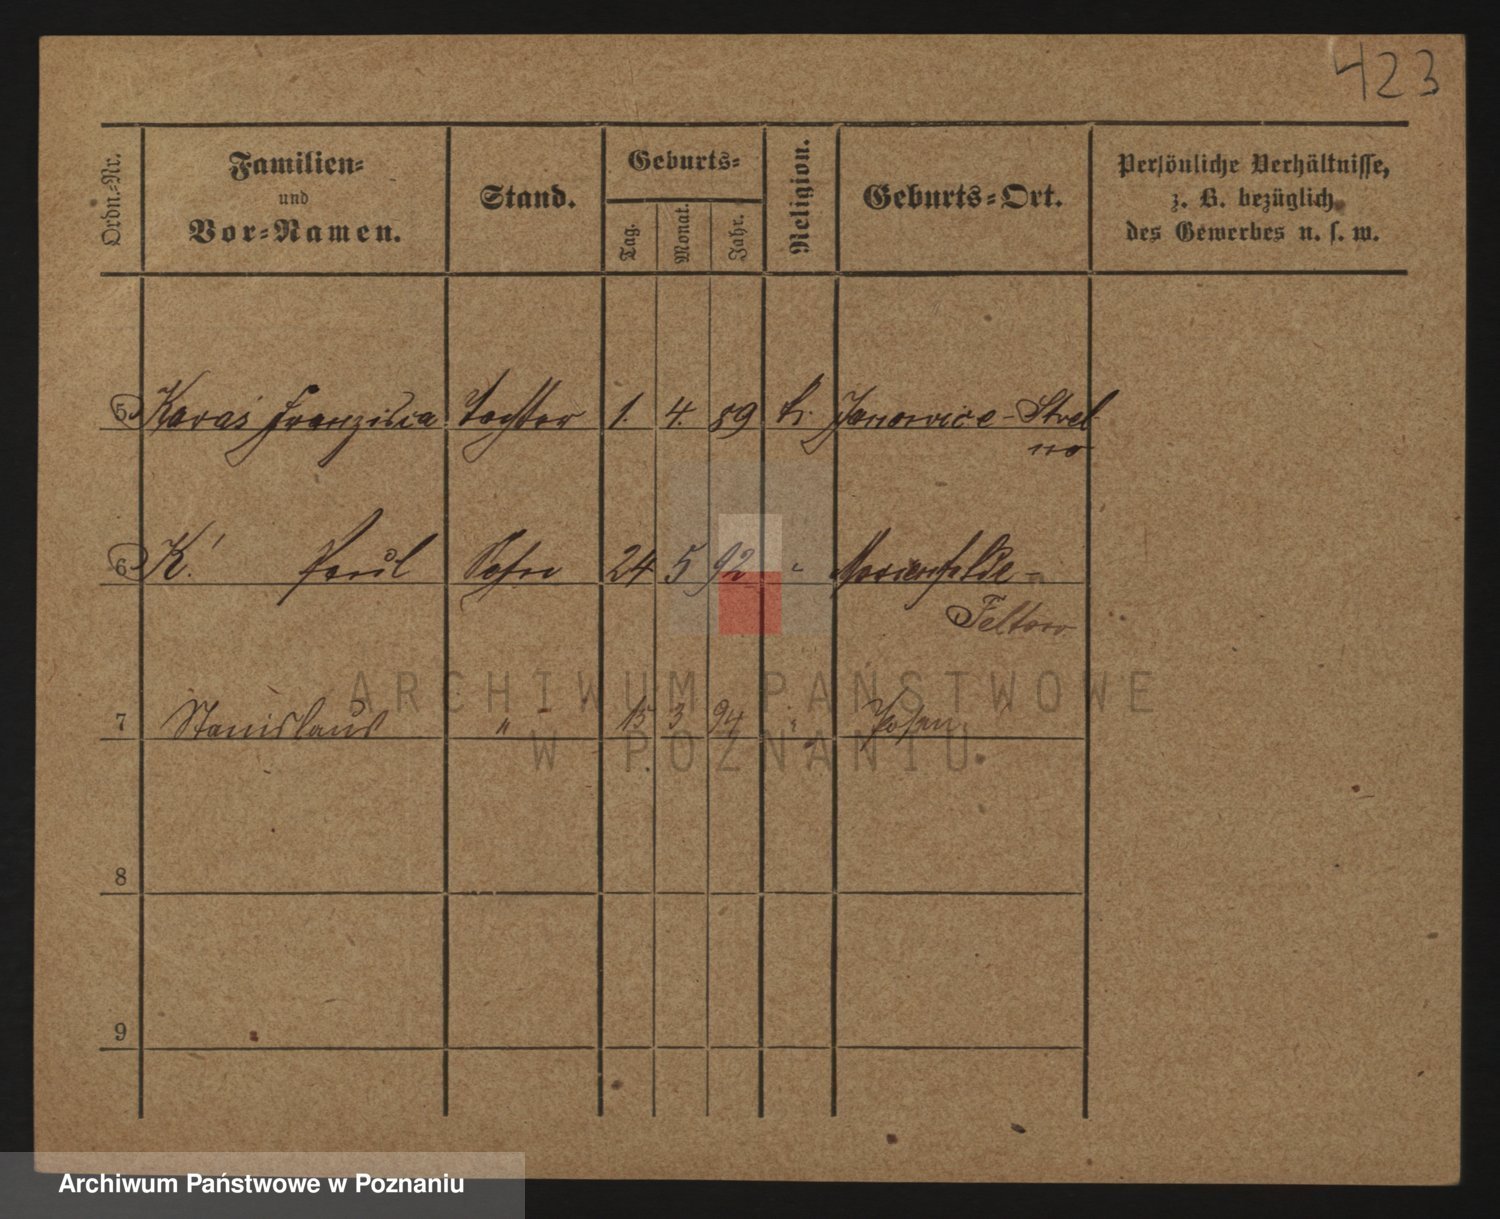 423
Ordn.-Nr.
Familien-
und
Vor-Namen.
Stand.
Geburts-
Tag.
Monat.
Jahr.
Religion.
Geburts-Ort.
Persönliche Verhältnisse,
z. B. bezüglich
des Gewerbes u. s. w.
5 Karaś Franziska Tochter 1. 4. 89 k. Janowice - Strel
no
6 K. Paul Sohn 24 5 92 " Marienfelde -
Teltow
7 Stanislaus " 15 3 94 " Posen
8
9
ARCHIWUM PAŃSTWOWE
W POZNANIU
Archiwum Państwowe w Poznaniu